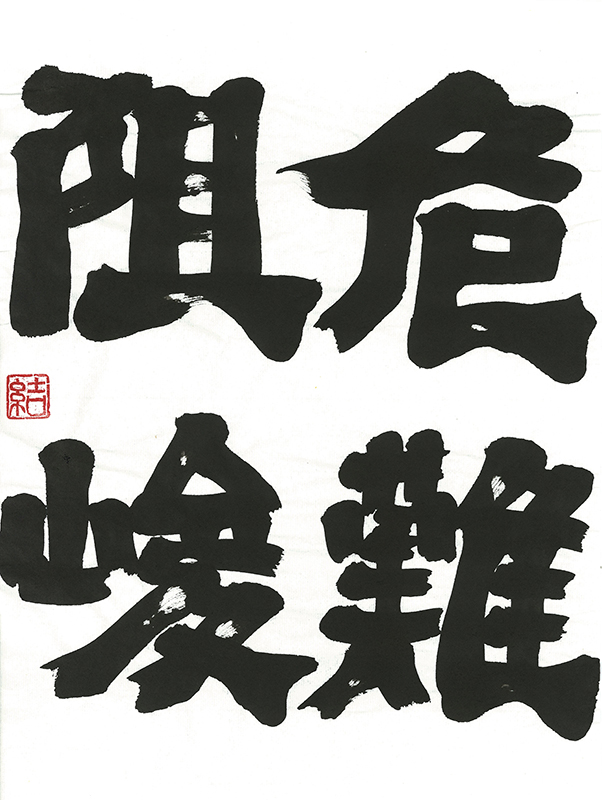 危難
阻峻
結